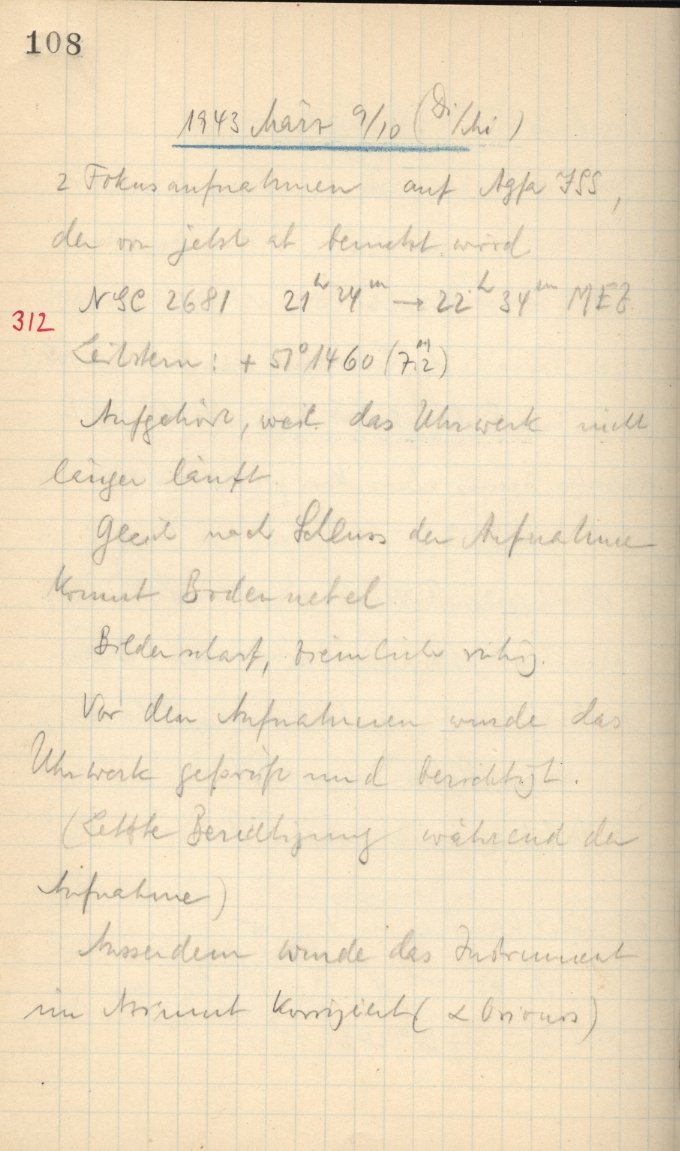 108
1943 März 9/10 (Di/Mi)
2 Fokusaufnahmen auf Agfa ISS,
der von jetzt ab benutzt wird
312 NGC 2681 21h 24m → 22h 34m MEZ
Leitstern: + 51° 1460 (7m.2)
Aufgehört, weil das Uhrwerk nicht
länger läuft.
Gleich nach Schluss der Aufnahme
kommt Bodennebel.
Bilder scharf, ziemlich ruhig.
Vor den Aufnahmen wurde das
Uhrwerk geprüft und berichtigt.
(Letzte Berichtigung während der
Aufnahme)
Ausserdem wurde das Instrument
im Azimut korrigiert (α Orionis)